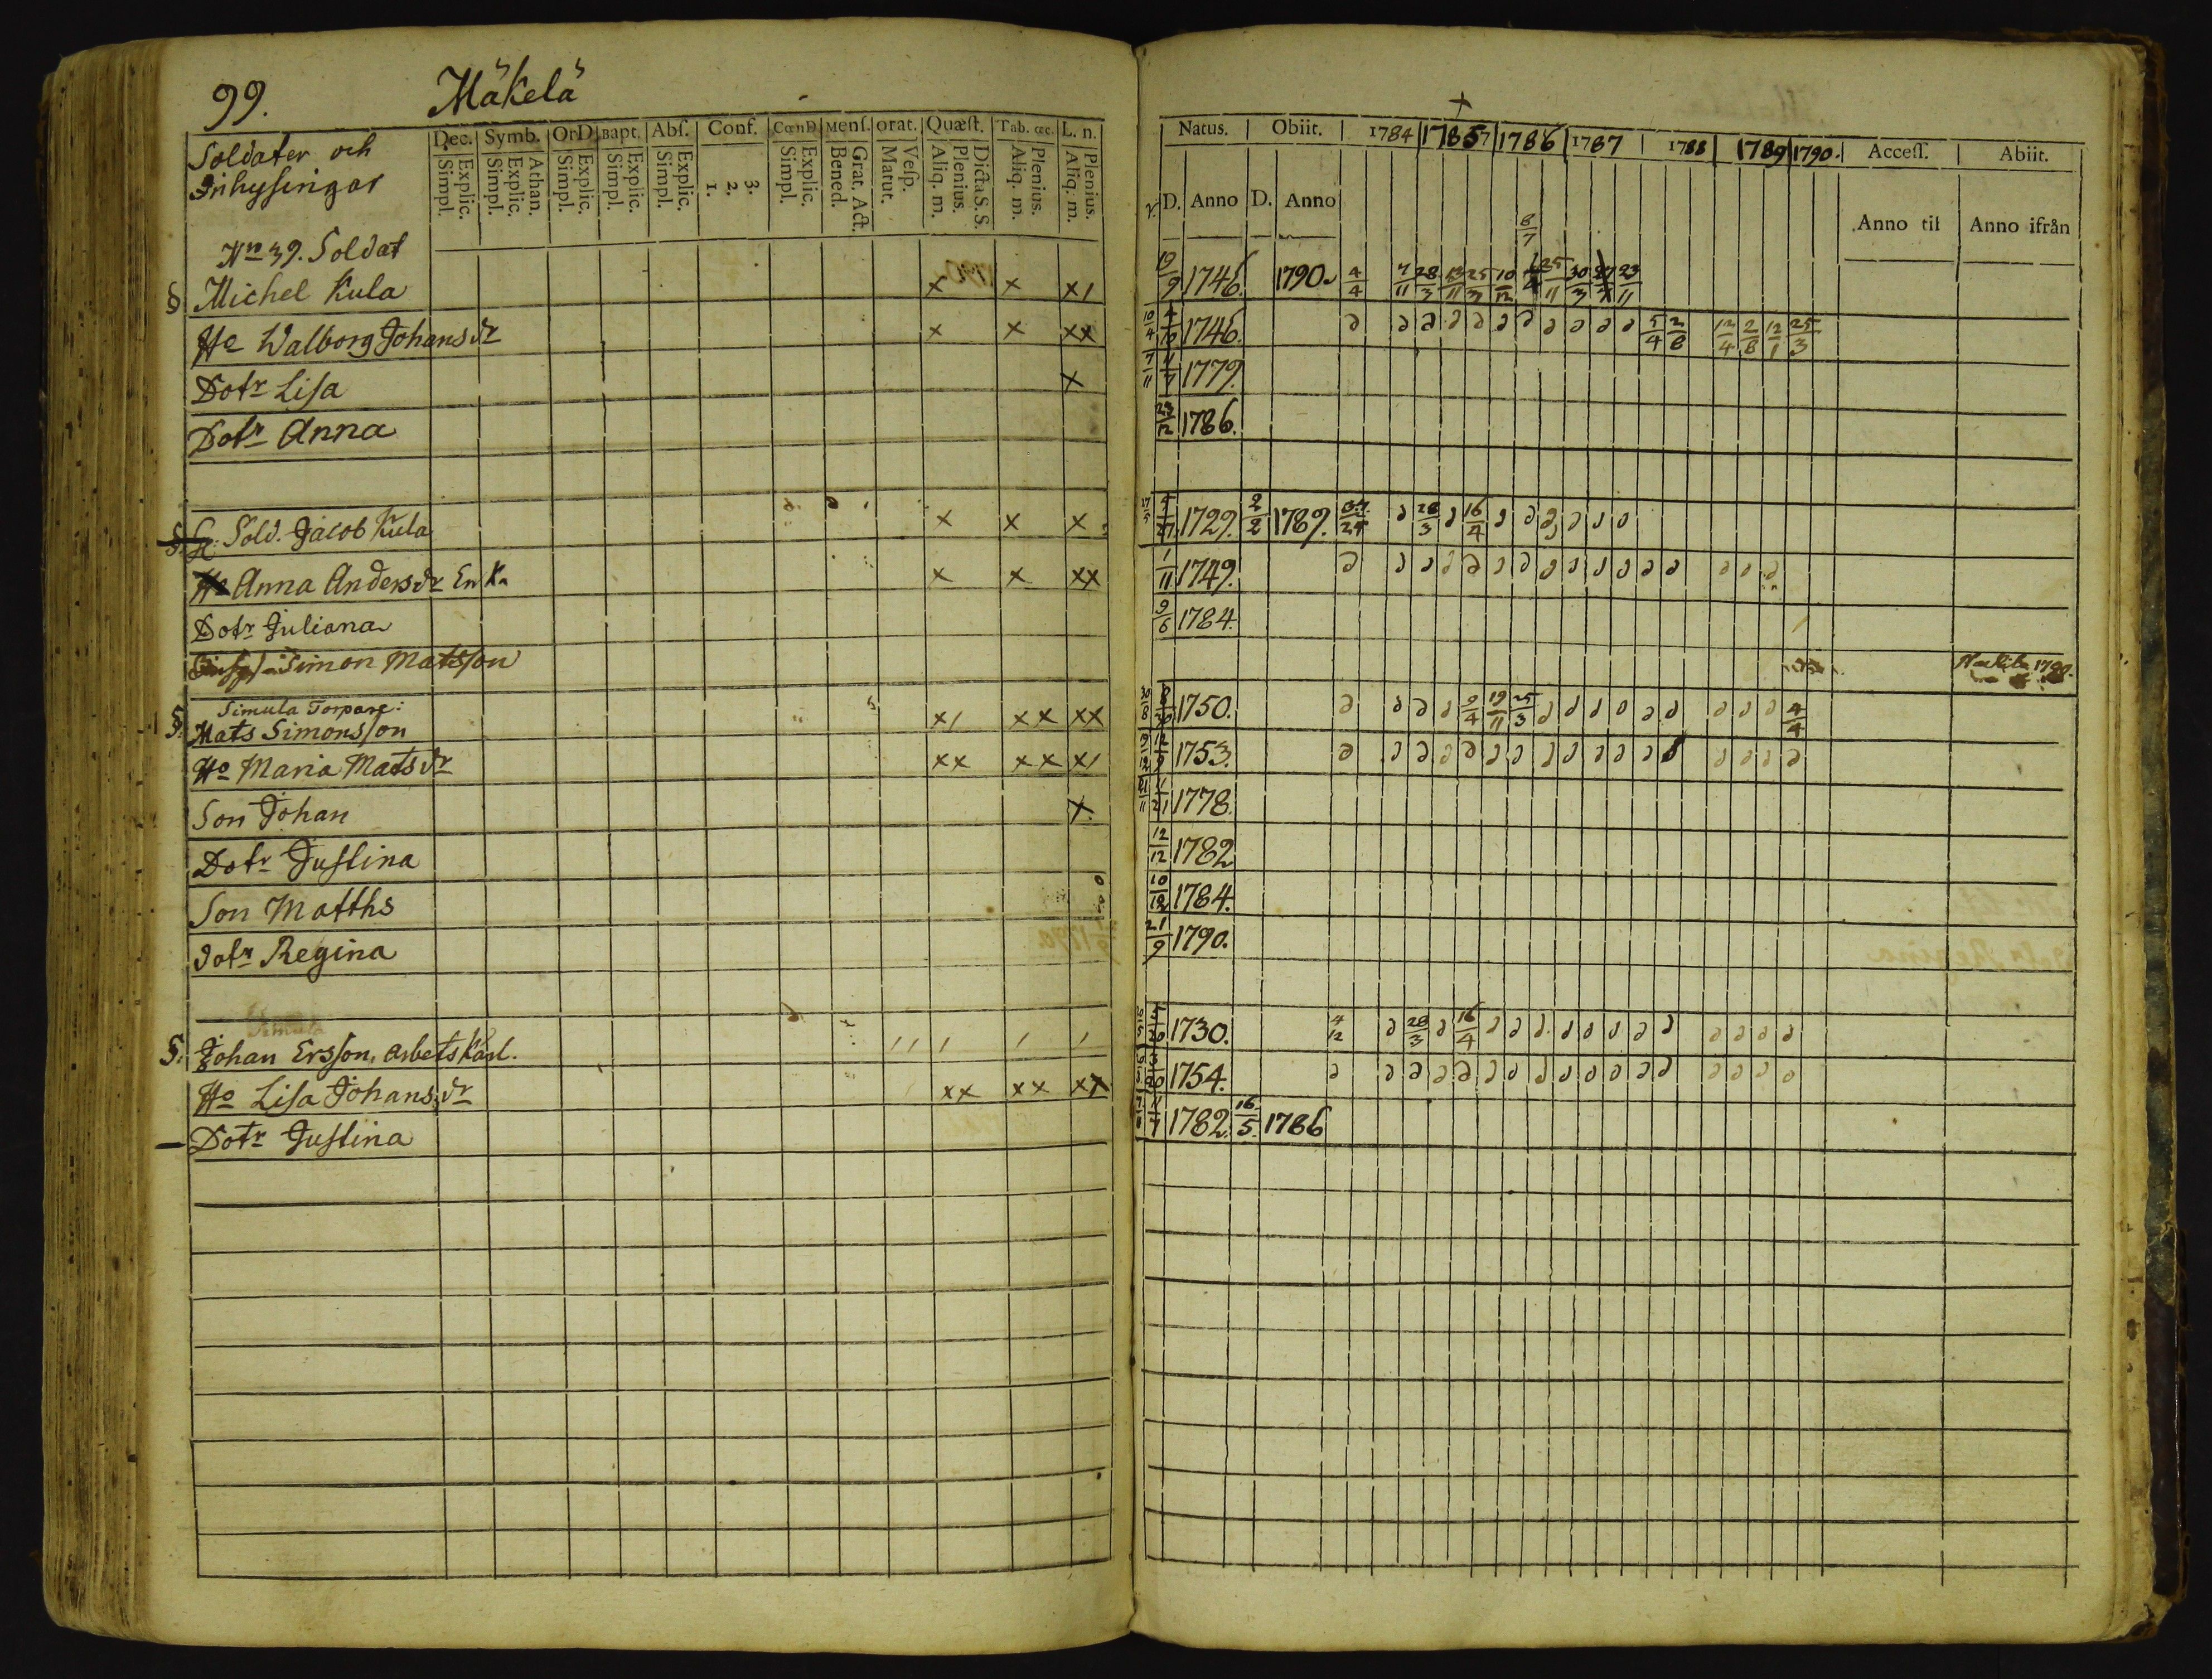 99. Mäkelä
Soldater och
Inhysingar
Dec. Symb. OrD Bapt. Abs. Conf. CœnD Mens. orat. Quæst. Tab. œc. L. n.
Explic. Simpl. Athan. Explic. Simpl. Explic. Simpl. Explic. Simpl. Explic. Simpl. 3. 2. 1. Explic. Simpl. Grat. Act. Bened. Vesp. Matut. Dicta S. S. Plenius. Aliq. m. Plenius. Aliq. m. Plenius. Aliq. m.
Natus. Obiit. 1784 1785 1786 1787 1788 1789 1790. Access. Abiit.
D. Anno D. Anno Anno til Anno ifrån
Nn 39. Soldat
§ Michel Kula x x x1 19/9 1746. 1790. 4/4 7/11 28/3 13/11 25/3 10/12 8/7 25/11 30/3 23/11
Ho Walborg Johansdr x x xx 10/4 4/10 1746. 5/4 2/8 12/4 2/8 12/1 25/3
Dotr Lisa x 7/11 11/7 1779.
Dotr Anna 23/12 1786.
§. Sold. Jacob Kula x x x 5/27 1729. 2/2 1789. 28/3 16/4
Anna Andersdr Enk. x x xx 1/11 1749.
Dotr Juliana 9/6 1784.
Simon Matsson 1790.
Simula Torpare:
§. Mats Simonsson x1 xx xx 30/8 8/30 1750. 9/4 19/11 25/3 4/4
Ho Maria Matsdr xx xx x1 12/9 1753.
Son Johan x 11/21 1778.
Dotr Justina 12/12 1782
Son Matths 10/12 1784.
dotr Regina 21/9 1790.
Simula
§. Johan Ersson, arbets Karl. 1 1 1 1 1 5/20 1730. 4/12 28/3 16/4
Ho Lisa Johansdr xx xx xx 1754.
Dotr Justina 11/7 1782. 16/5. 1786